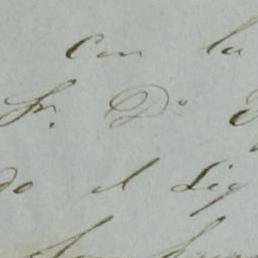 Con la
Sr. Dº
do el Sig